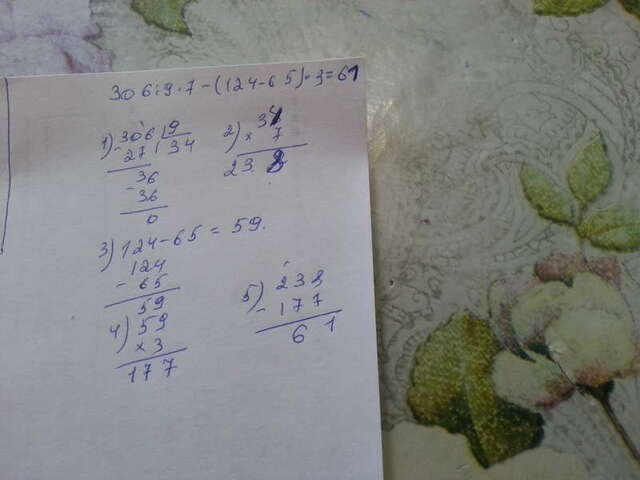 306:9·7-(124-65)·3=61
1) 306 | 9
- 27 | 34
36
- 36
0
2) 34
× 7
238
3) 124-65 = 59.
124
- 65
59
4) 59
× 3
177
5) 238
- 177
61